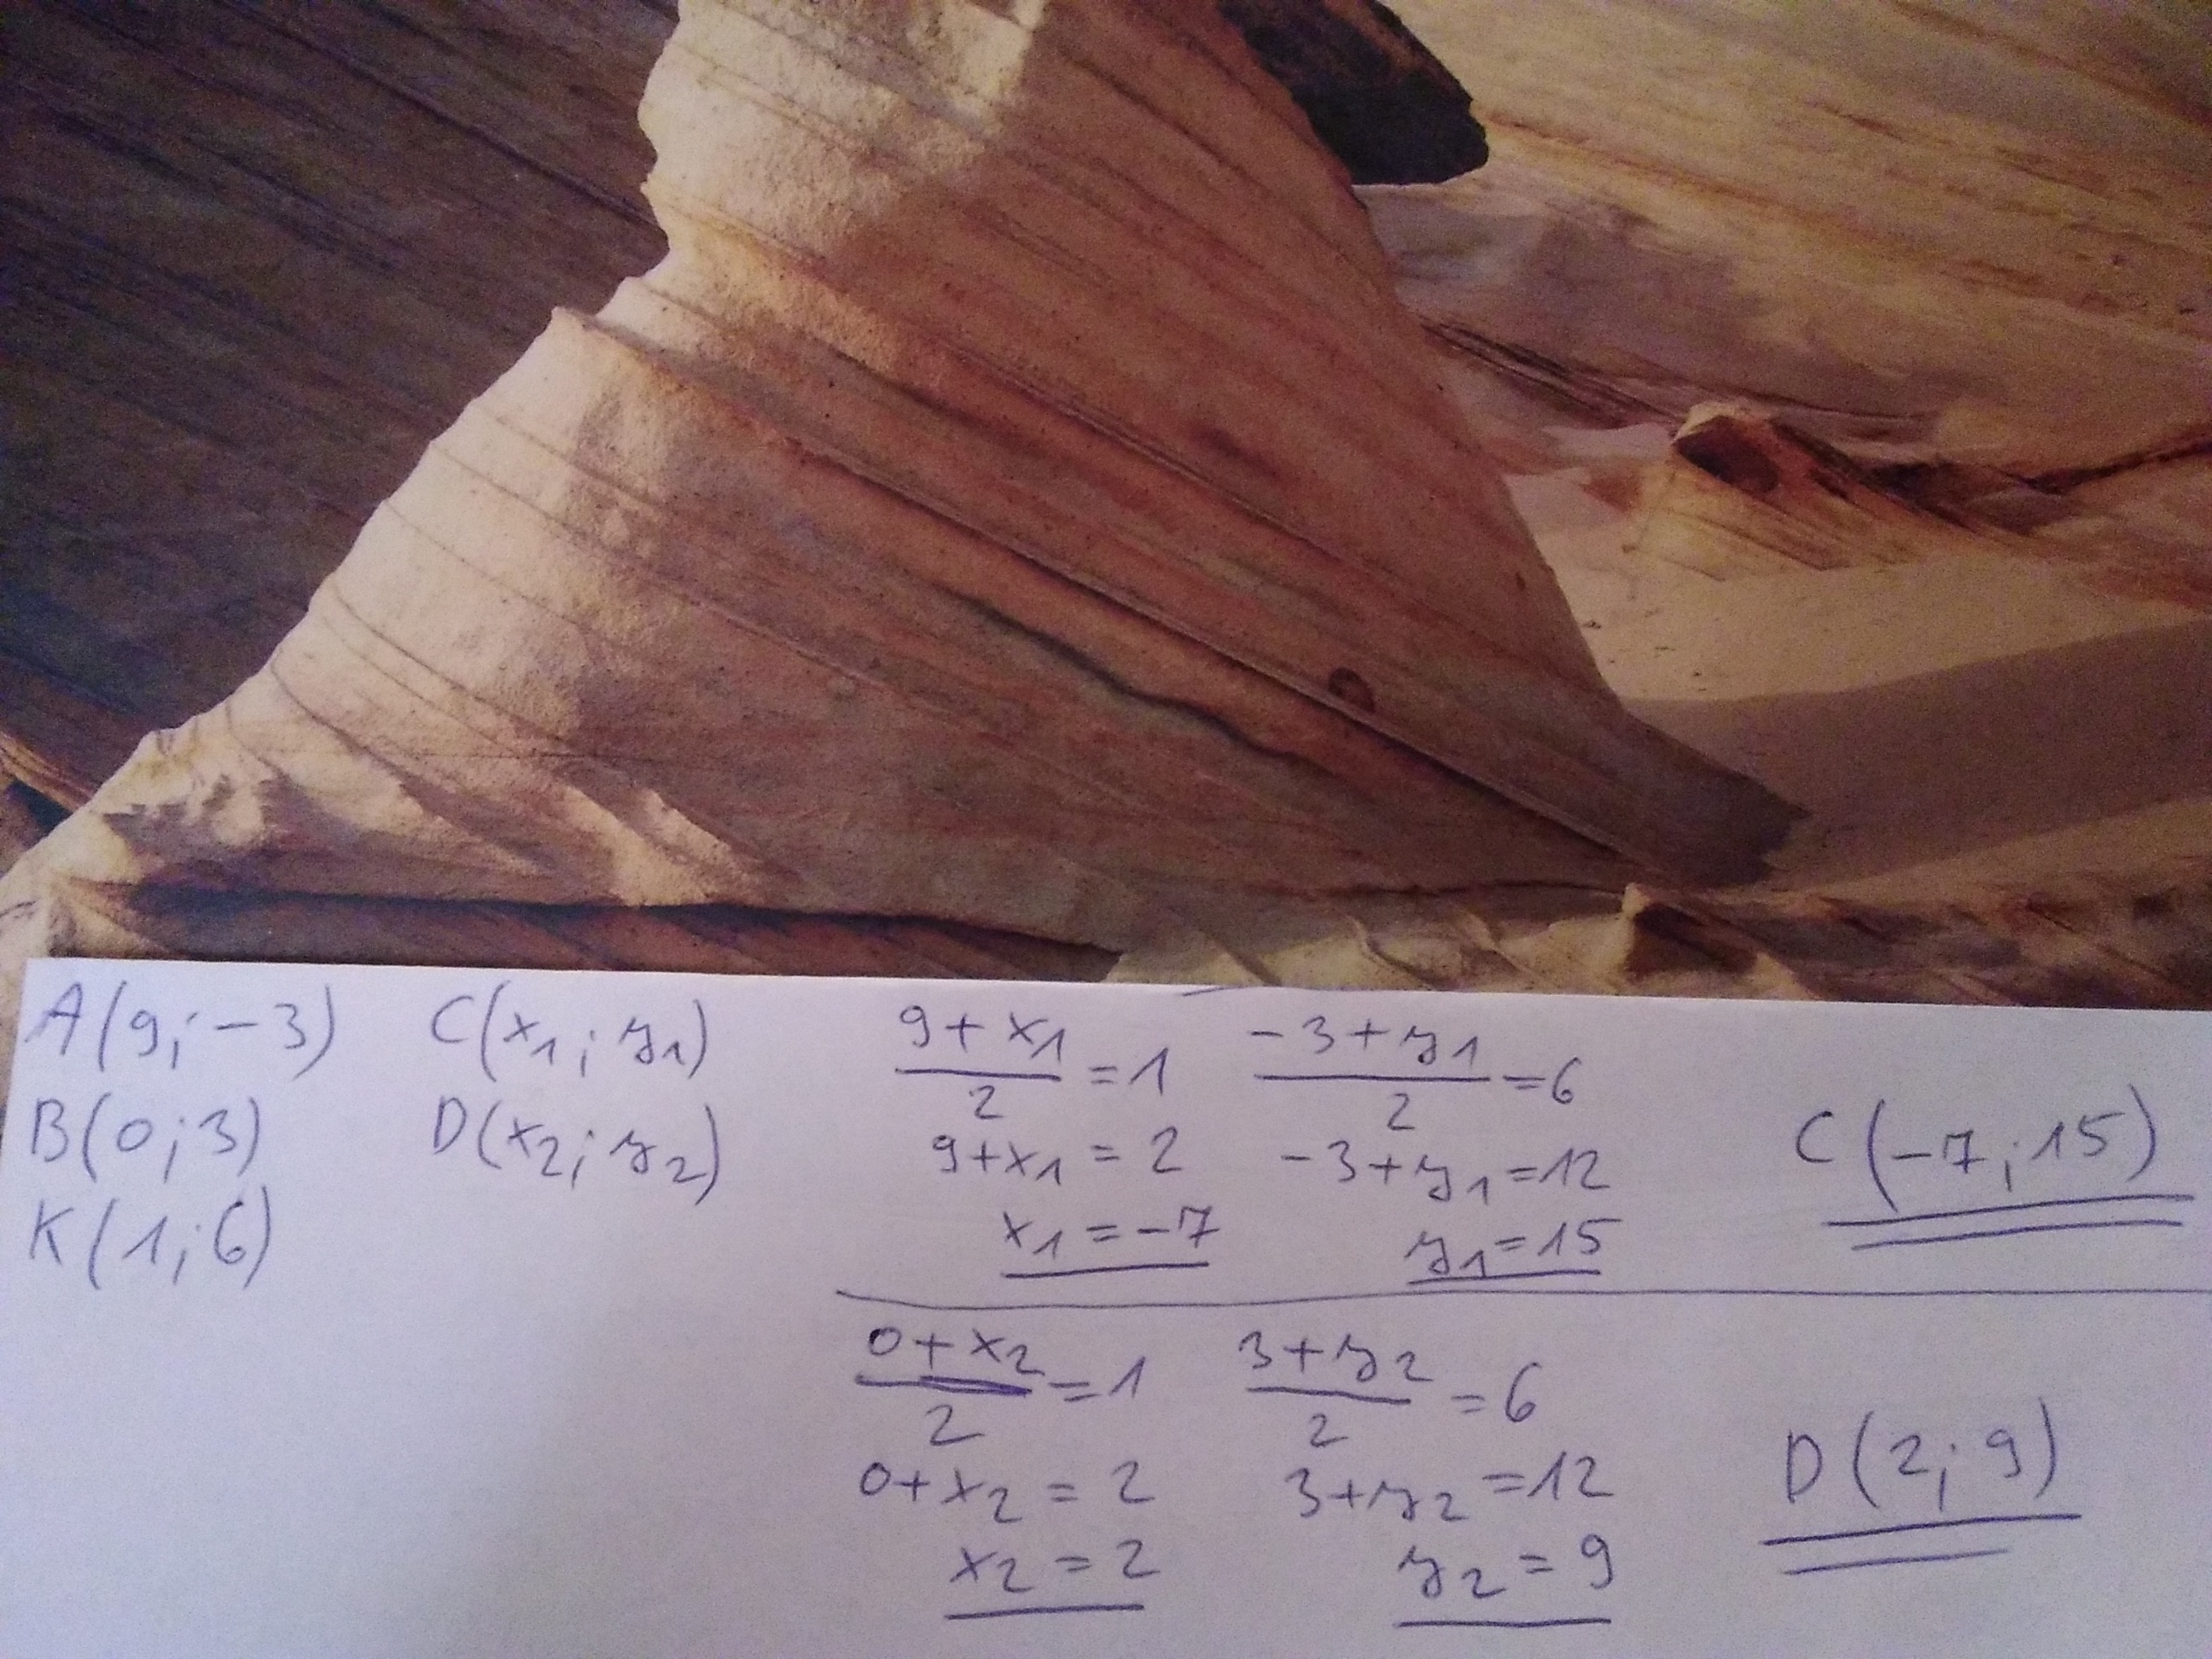 A(9;-3)
B(0;3)
K(1;6)
C(x₁;y₁)
D(x₂;y₂)
(9+x₁)/2=1
9+x₁=2
x₁=-7
(-3+y₁)/2=6
-3+y₁=12
y₁=15
C(-7;15)
(0+x₂)/2=1
0+x₂=2
x₂=2
(3+y₂)/2=6
3+y₂=12
y₂=9
D(2;9)